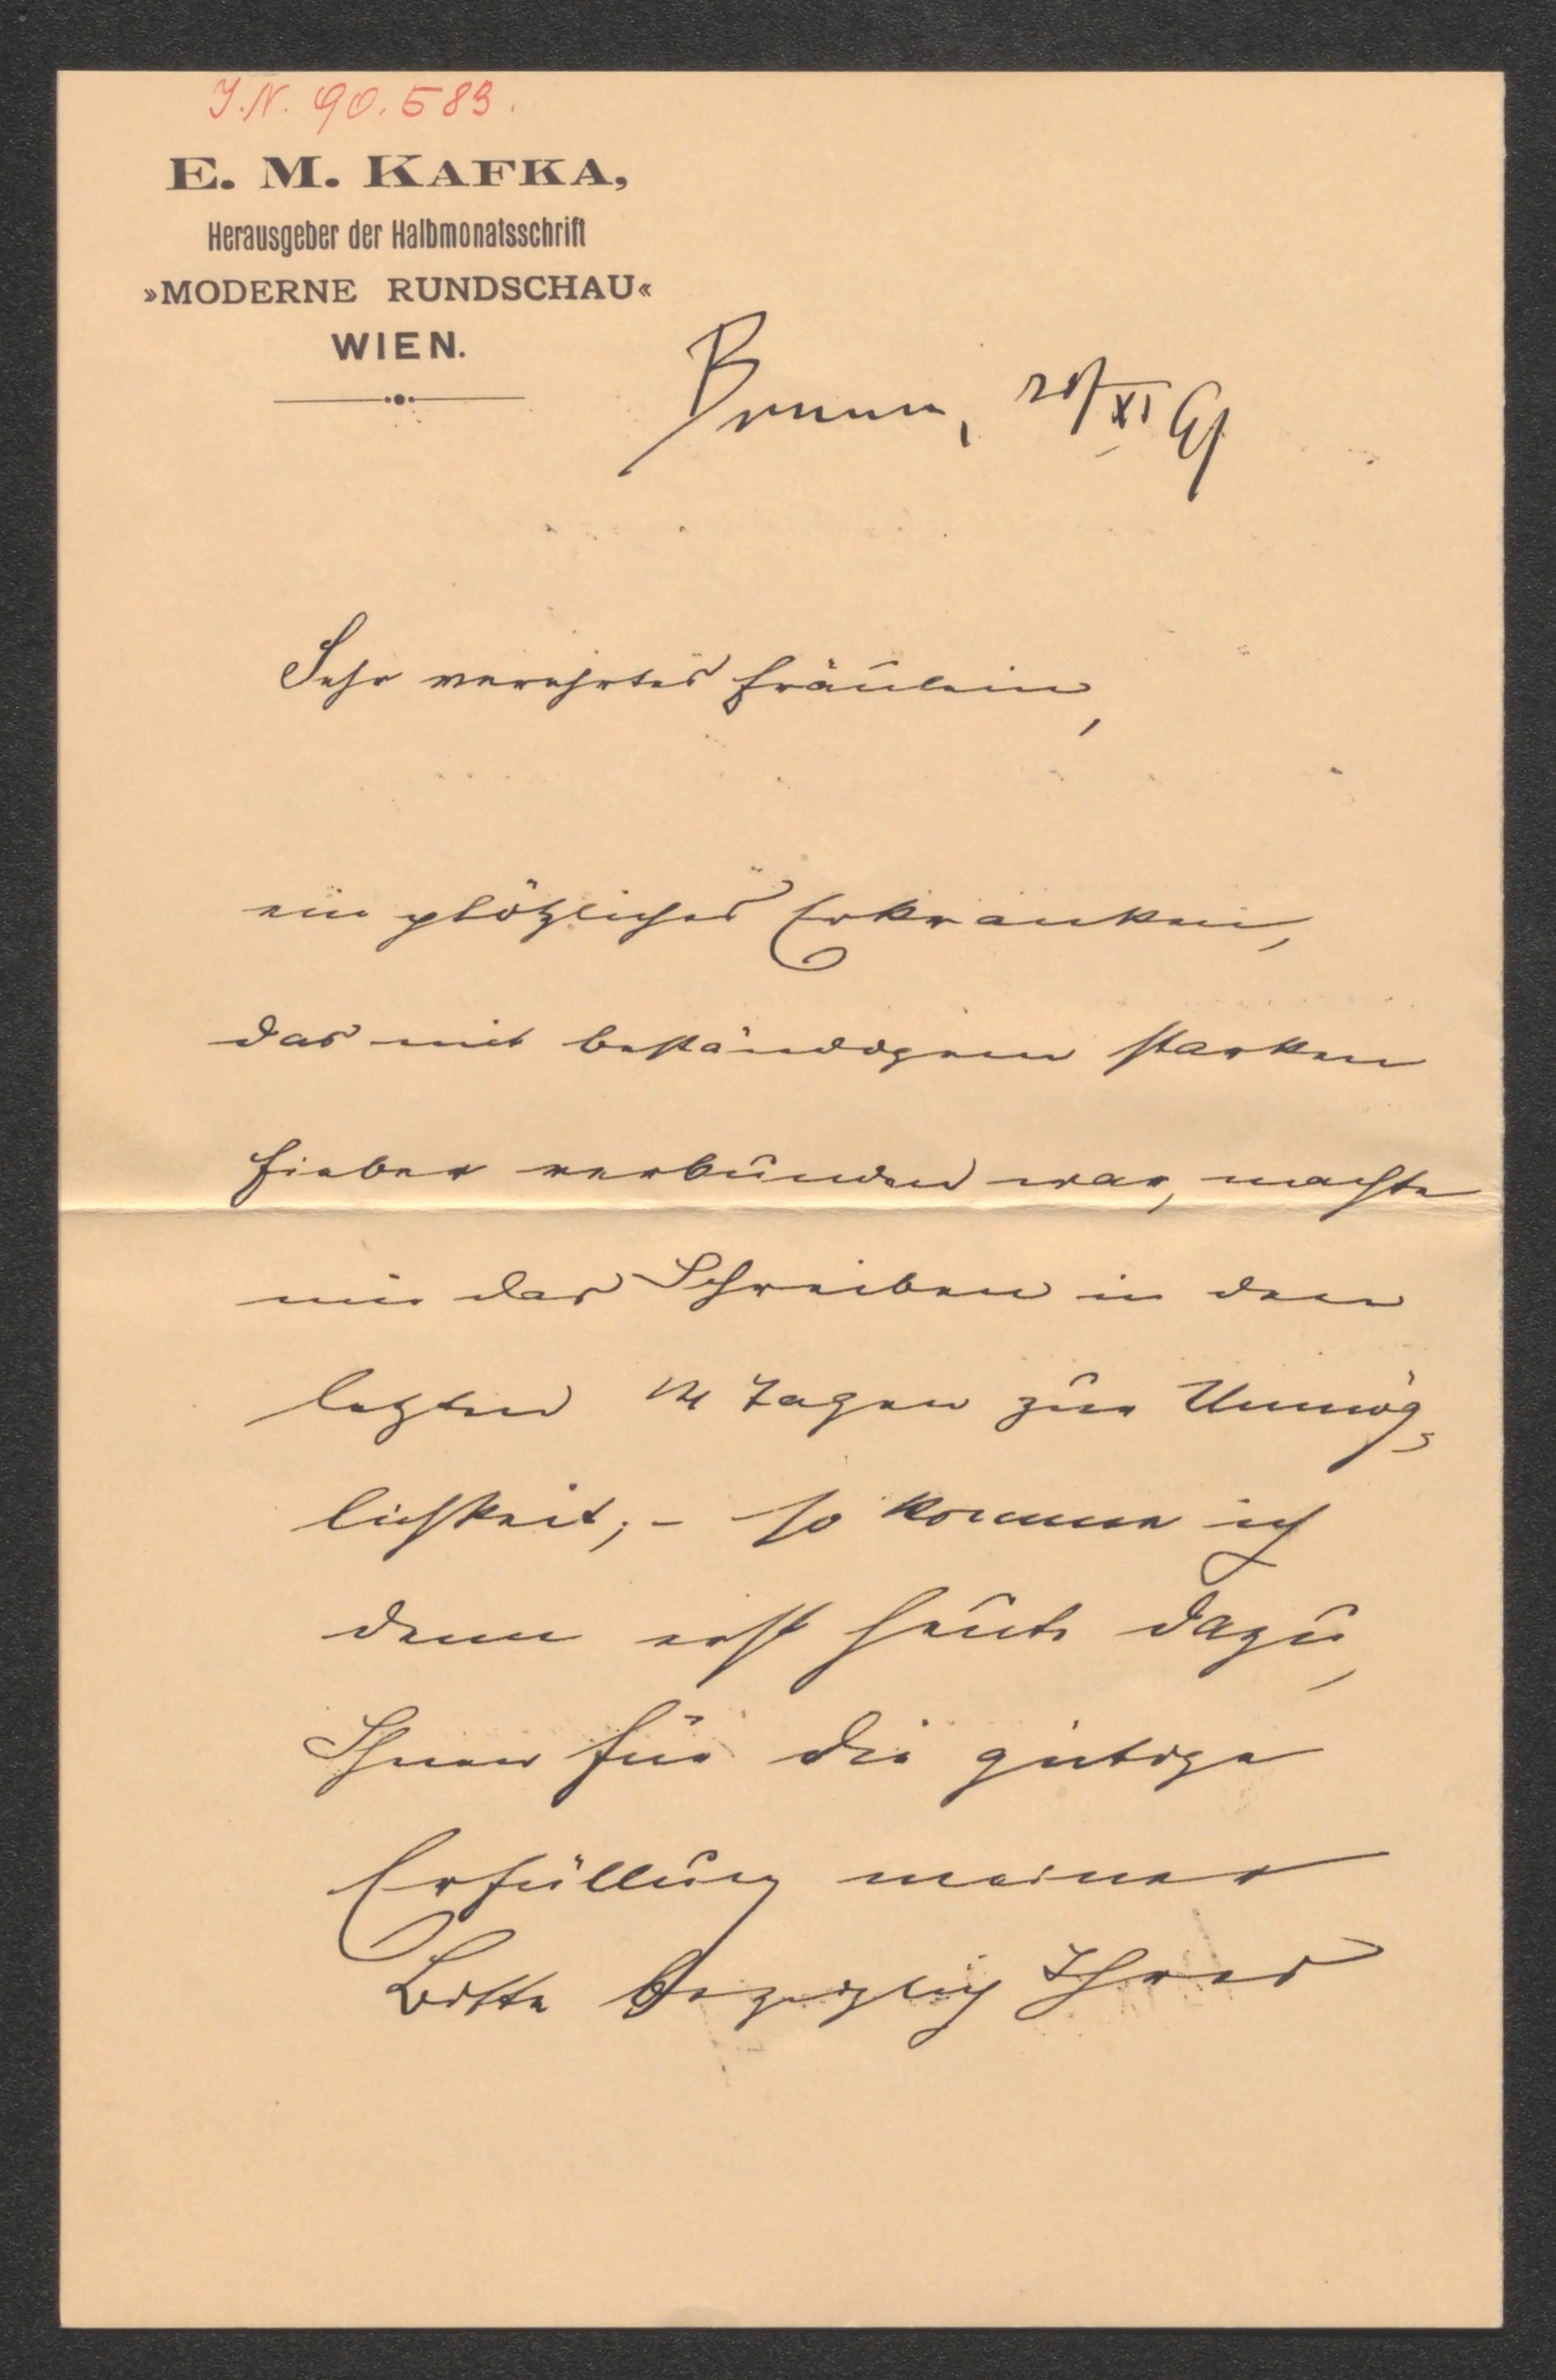 J.N. 90.583.
E. M. KAFKA,
Herausgeber der Halbmonatsschrift
»MODERNE RUNDSCHAU«
WIEN.
Brünn, XI 91
Sehr verehrtes Fräulein,
ein plötzliches Erkranken,
das mit beständigem starken
Fieber verbunden war, machte
mir das Schreiben in den
letzten 14 Tagen zur Unmög-
lichkeit; - so komme ich
denn erst heute dazu,
Ihnen für die gütige
Erfüllung meiner
Bitte bezüglich Ihres